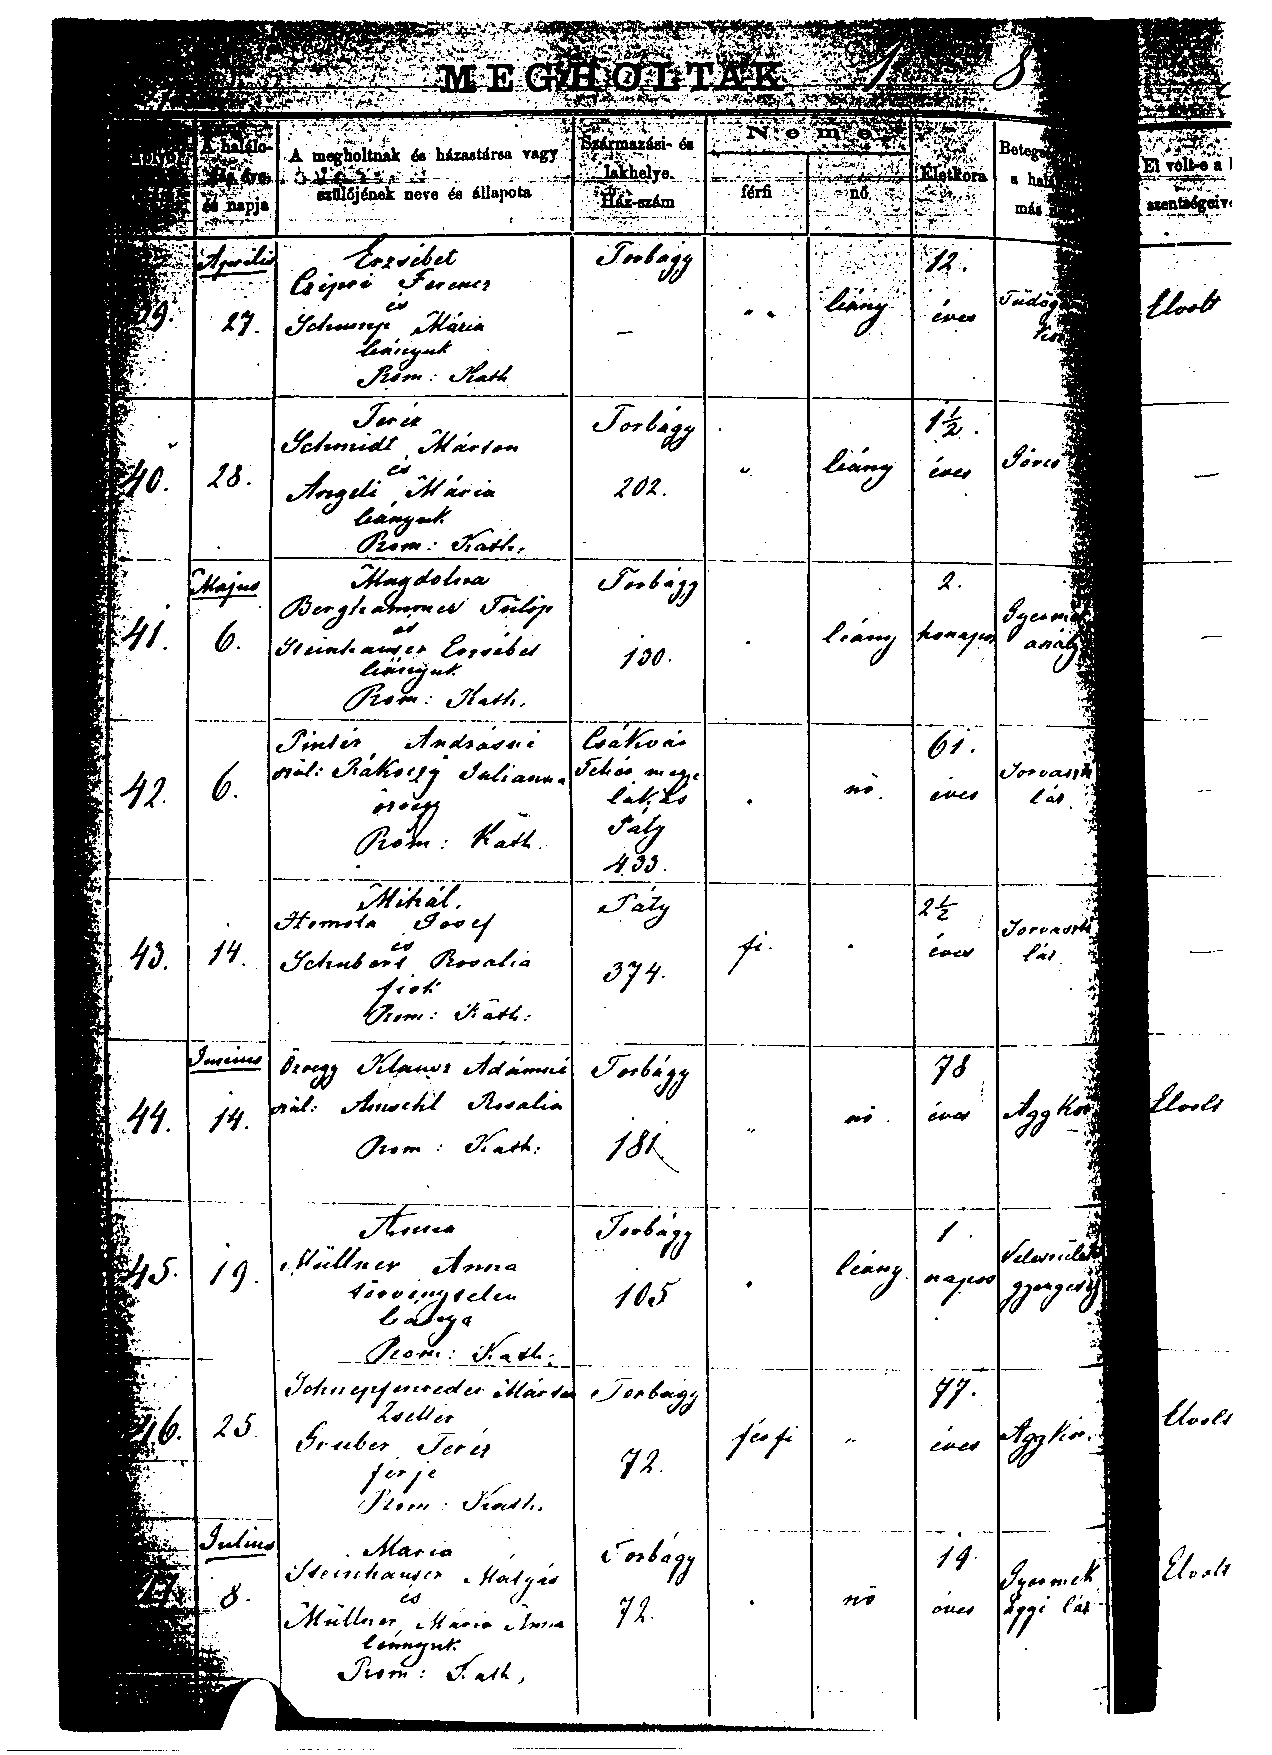 MEGHOLTAK 1 8
A halálo-
zás éve
és napja
A megholtnak és házastársa vagy
szülőjének neve és állapota
Származási- és
lakhelye.
Ház-szám
Neme
férfi
nő
Életkora
Beteg
a hal
más
El volt-e a
szentségeiv
Április
27.
Erzsébet
Csipri Ferencz
és
Schump Mária
leányuk
Rom: Kath
Torbágy
—
leány
12.
éves
Elvolt
40.
28.
Teréz
Schmidt Márton
és
Angeli Mária
leányuk
Rom: Kath.
Torbágy
202.
leány
1½
éves
Görcs
—
41.
Majus
6.
Magdolna
Berghammer Fülöp
és
Steinhauser Erzsébet
leányuk
Rom: Kath.
Torbágy
130.
leány
2.
honapos
Gyermek
aszály
—
42.
6.
Pintér Andrásné
szül: Rákoczy Julianna
özvegy
Rom: Kath.
Csákvár
Fehér megye
lakás
Páty
433.
nö.
61.
éves
Sorvaszt
lás.
—
43.
14.
Mihál.
Homola Josef
és
Schubert Rosalia
fiok
Rom: Kath:
Páty
374.
fi.
2½
éves
Sorvaszt
lás
—
44.
Junius
14.
Özvegy Klausz Adámné
szül: Amschl Rosalia
Rom: Kath:
Torbágy
181
nö.
78
éves
Agg kor
Elvolt
45.
19.
Anna
Müllner Anna
törvénytelen
lánya
Rom: Kath:
Torbágy
105
leány.
1.
napos
Veleszület
gyengeség
46.
25.
Schnepfenreder Márton
Zsellér
Gruber Teréz
férje
Rom: Kath.
Torbágy
72.
férfi
77.
éves
Agg kor.
Elvolt
Julius
8.
Maria
Steinhauser Mátyás
és
Müllner Mária Anna
leányuk
Rom: Kath,
Torbágy
72.
nö
19.
éves
Gyermek
ággi láz
Elvolt